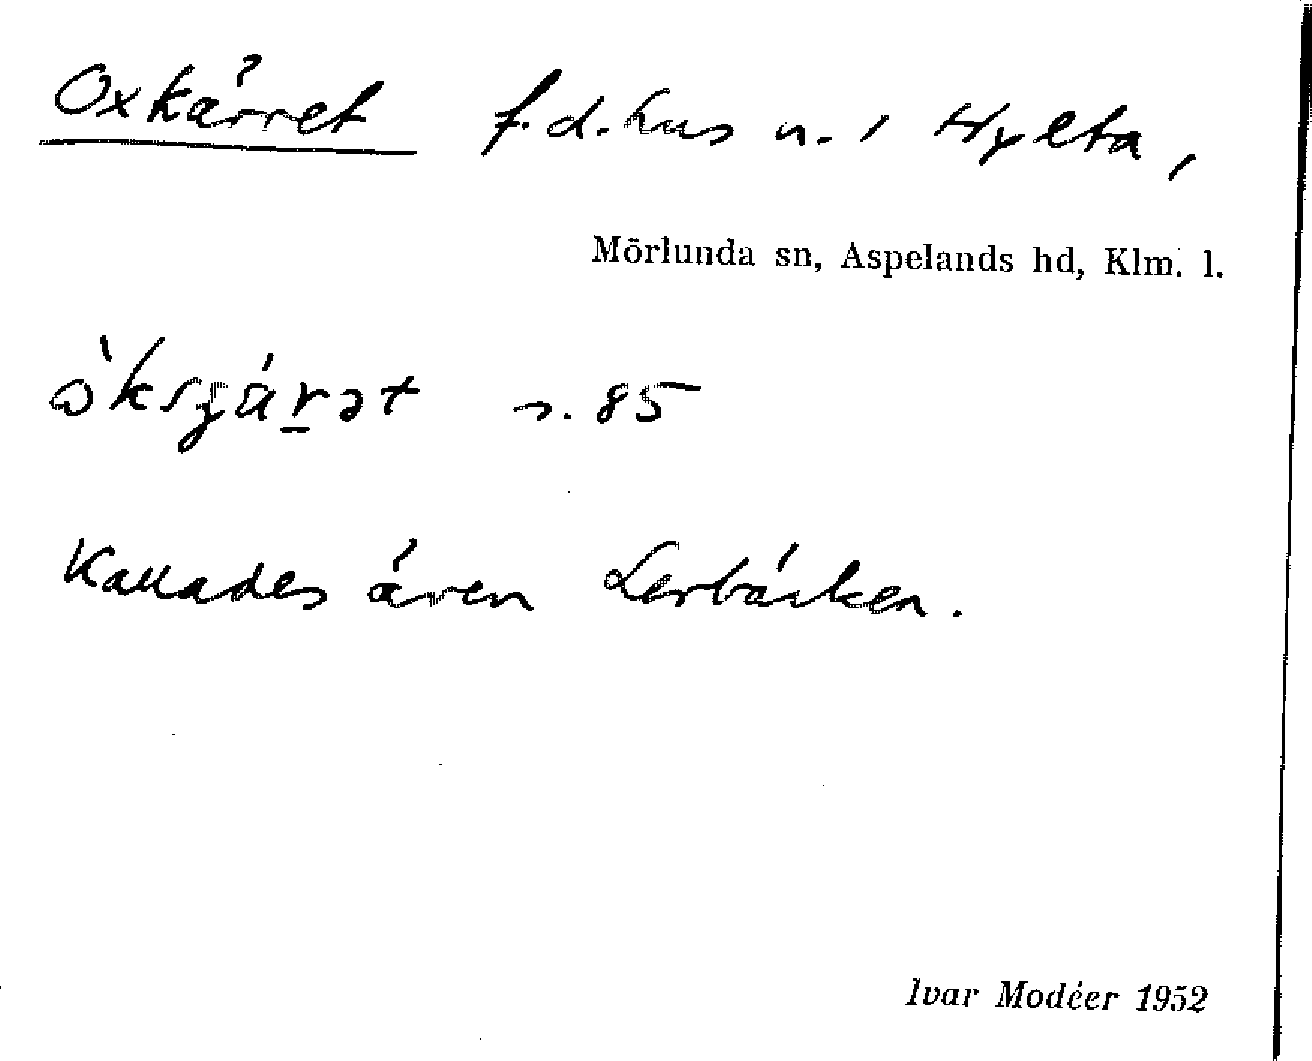 Oxkärret f.d. hus n. i Hylta,
Mörlunda sn, Aspelands hd, Klm. l.
s. 85
Kallades även Lerbäcken.
Ivar Modéer 1952